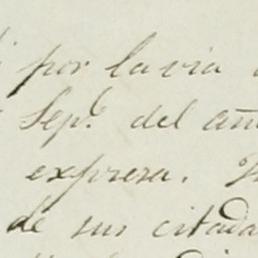 por la via
Sep.e del añ
expresa.
de sus citada